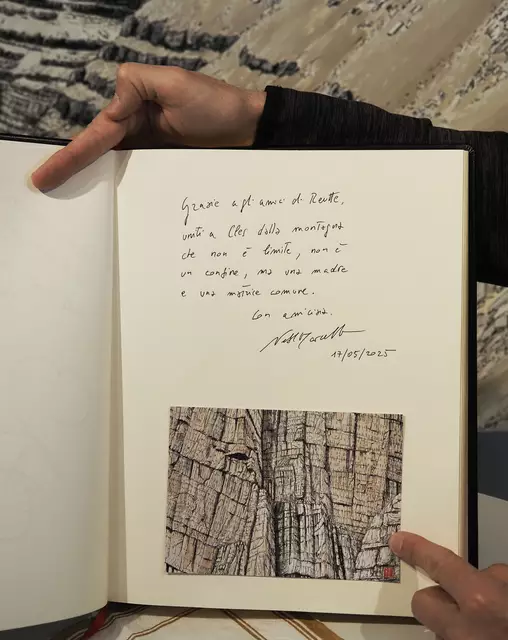 Grazie agli amici di Reutte,
uniti a Cles dalla montagna
che non è limite, non è
un confine, ma una madre
e una matrice comune.
Con amicizia.
17/05/2025